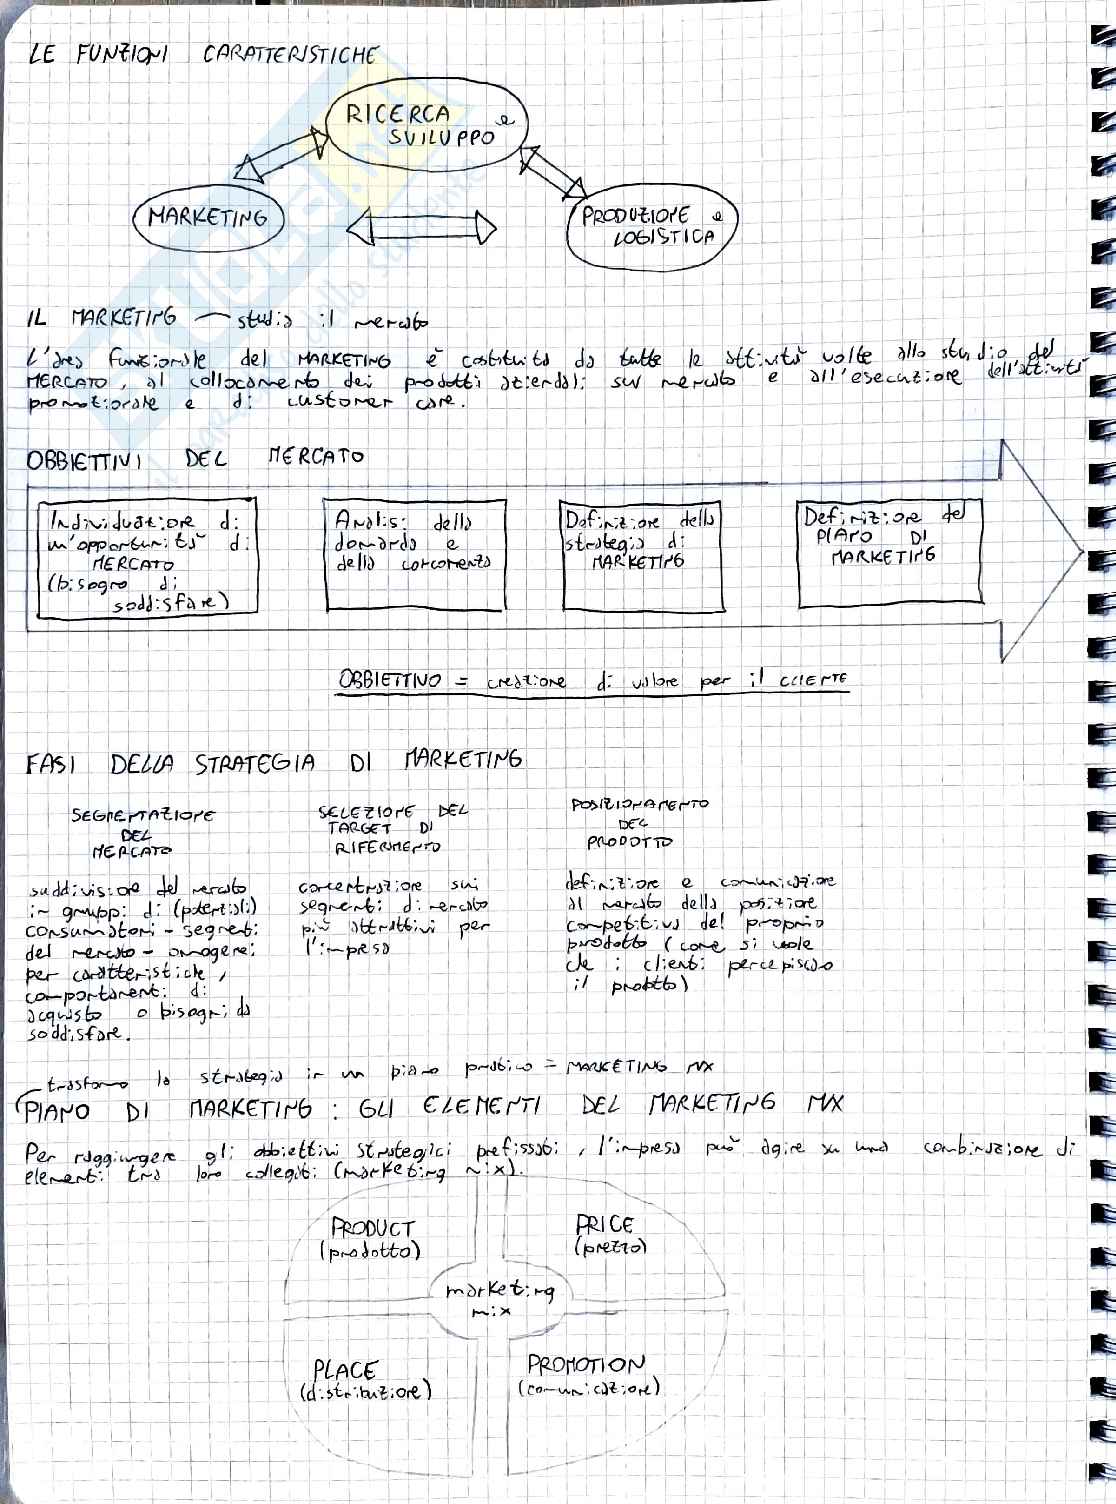 LE FUNZIONI CARATTERISTICHE
RICERCA e
SVILUPPO
MARKETING
PRODUZIONE e
LOGISTICA
IL MARKETING — studia il mercato
L'area funzionale del MARKETING è costituita da tutte le attività volte allo studio del
MERCATO, al collocamento dei prodotti aziendali sul mercato e all'esecuzione dell'attività
promozionale e di customer care.
OBBIETTIVI DEL MERCATO
Individuazione di
un'opportunità di
MERCATO
(bisogno di
soddisfare)
Analisi della
domanda e
della concorrenza
Definizione della
strategia di
MARKETING
Definizione del
PIANO DI
MARKETING
OBBIETTIVO = creazione di valore per il CLIENTE
FASI DELLA STRATEGIA DI MARKETING
SEGMENTAZIONE
DEL
MERCATO
suddivisione del mercato
in gruppi di (potenziali)
consumatori - segmenti
del mercato - omogenei
per caratteristiche,
comportamenti di
acquisto o bisogni da
soddisfare.
SELEZIONE DEL
TARGET DI
RIFERIMENTO
concentrazione sui
segmenti di mercato
più attrattivi per
l'impresa
POSIZIONAMENTO
DEL
PRODOTTO
definizione e comunicazione
al mercato della posizione
competitiva del proprio
prodotto (come si vuole
che i clienti percepiscano
il prodotto)
trasformo la strategia in un piano pratico = MARKETING MIX
PIANO DI MARKETING: GLI ELEMENTI DEL MARKETING MIX
Per raggiungere gli obbiettivi strategici prefissati, l'impresa può agire su una combinazione di
elementi tra loro collegati (marketing mix).
PRODUCT
(prodotto)
PRICE
(prezzo)
marketing
mix
PLACE
(distribuzione)
PROMOTION
(comunicazione)